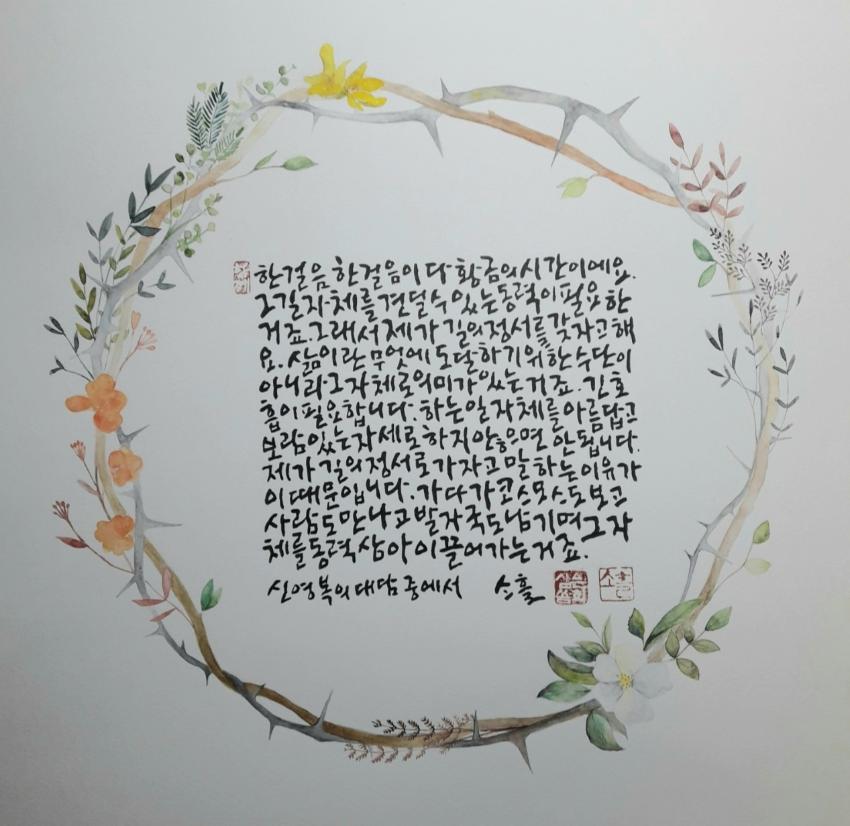 한걸음 한걸음이 다 황금의 시간이에요.
그 길 자체를 견딜 수 있는 동력이 필요한
거죠. 그래서 제가 길의 정서를 갖자고 해
요. 삶이란 무엇에 도달하기 위한 수단이
아니라 그 자체로 의미가 있는 거죠. 긴 호
흡이 필요합니다. 하는 일 자체를 아름답고
보람있는 자세로 하지 않으면 안됩니다.
제가 길의 정서로 가자고 말하는 이유가
이 때문입니다. 가다가 코스모스도 보고
사람도 만나고 발자국도 남기며 그 자
체를 동력 삼아 이끌어가는 거죠.
신영복의 대담 중에서